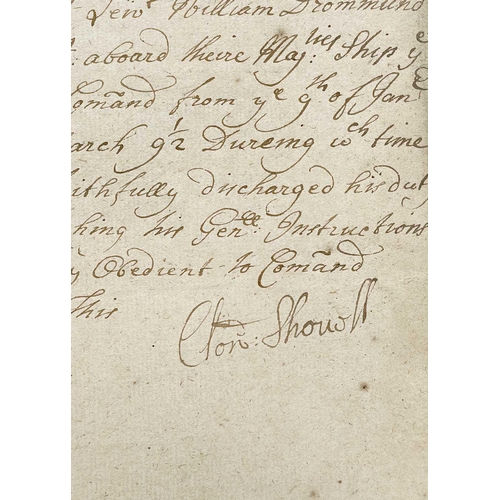 Lew^t William Drommund
aboard theire Maj^ties Ship y^e
Comand from y^e 9^th of Jan^
arch 9½ Dureing w^ch time
ithfully discharged his duty
hing his Gen^ll: Instructions
y Obedient to Comand
This
Clow: Shovell